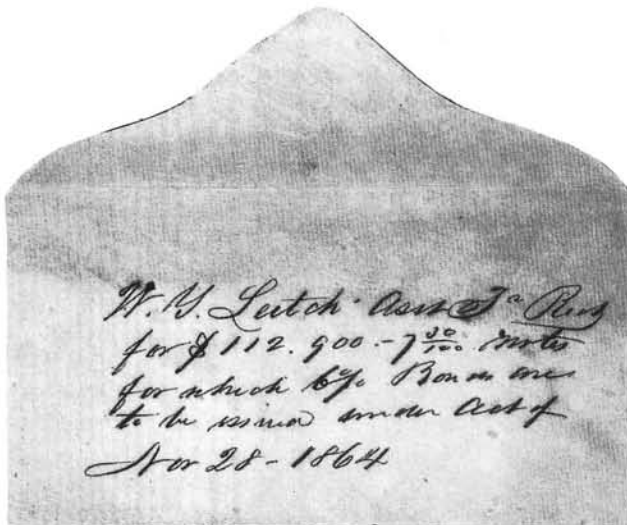 W. Y. Leitch Asst Tr Rects
for $112.900 - 7 30/100 notes
for which 6% Bonds are
to be issued under Act of
Nov 28 - 1864